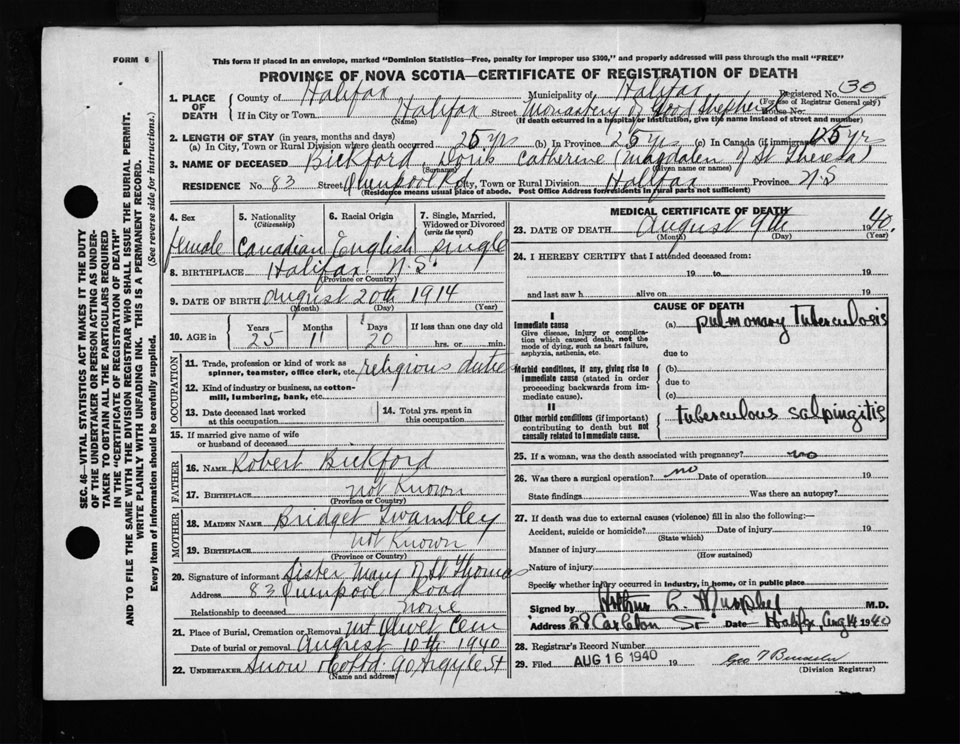 FORM 6
This form if placed in an envelope, marked "Dominion Statistics—Free, penalty for improper use $300," and properly addressed will pass through the mail "FREE"
PROVINCE OF NOVA SCOTIA—CERTIFICATE OF REGISTRATION OF DEATH
1. PLACE OF DEATH County of Halifax Municipality of Halifax Registered No. 30
(For use of Registrar General only)
If in City or Town Halifax Street Monastery of Good Shepherd House No.
(Name) (If death occurred in a hospital or institution, give the name instead of street and number)
2. LENGTH OF STAY (in years, months and days)
(a) In City, Town or Rural Division where death occurred 25 yrs (b) In Province 25 yrs (c) In Canada (if immigrant) 25 yrs
3. NAME OF DECEASED Bickford, Doris Catherine (Magdalen of St Theresa)
(Surname) (Given name or names)
RESIDENCE No. 83 Street Quinpool Rd City, Town or Rural Division Halifax Province N.S
(Residence means usual place of abode. Post Office Address for residents in rural parts not sufficient)
4. Sex female
5. Nationality (Citizenship) Canadian
6. Racial Origin English
7. Single, Married, Widowed or Divorced (write the word) single
8. BIRTHPLACE Halifax N.S.
(Province or Country)
9. DATE OF BIRTH August 20th 1914
(Month) (Day) (Year)
10. AGE in Years 25 Months 11 Days 20 If less than one day old hrs. or min.
OCCUPATION
11. Trade, profession or kind of work as spinner, teamster, office clerk, etc. religious duties
12. Kind of industry or business, as cotton-mill, lumbering, bank, etc.
13. Date deceased last worked at this occupation
14. Total yrs. spent in this occupation
15. If married give name of wife or husband of deceased
FATHER
16. NAME Robert Bickford
17. BIRTHPLACE not Known
(Province or Country)
MOTHER
18. MAIDEN NAME Bridget Twambley
19. BIRTHPLACE not Known
(Province or Country)
20. Signature of informant Sister Mary of St Thomas
Address 83 Quinpool Road
Relationship to deceased none
21. Place of Burial, Cremation or Removal Mt Olivet Cem
Date of burial or removal August 10th 1940
22. UNDERTAKER Snow & Co Ltd. 90 Argyle St
(Name and address)
MEDICAL CERTIFICATE OF DEATH
23. DATE OF DEATH August 9th 1940.
(Month) (Day) (Year)
24. I HEREBY CERTIFY that I attended deceased from:
19 to 19
and last saw h alive on 19
CAUSE OF DEATH
I
Immediate cause
Give disease, injury or complication which caused death, not the mode of dying, such as heart failure, asphyxia, asthenia, etc.
(a) pulmonary Tuberculosis
due to
Morbid conditions, if any, giving rise to immediate cause (stated in order proceeding backwards from immediate cause).
(b)
due to
(c)
II
Other morbid conditions (if important) contributing to death but not causally related to immediate cause.
tuberculous salpingitis
25. If a woman, was the death associated with pregnancy? no
26. Was there a surgical operation? no Date of operation 19
State findings Was there an autopsy?
27. If death was due to external causes (violence) fill in also the following:—
Accident, suicide or homicide? Date of injury 19
(State which)
Manner of injury
(How sustained)
Nature of injury
Specify whether injury occurred in industry, in home, or in public place
Signed by Arthur L. Murphy M.D.
Address 28 Carleton St Date Halifax, Aug 14 1940
28. Registrar's Record Number
29. Filed AUG 16 1940 19
(Division Registrar)
SEC. 46—VITAL STATISTICS ACT MAKES IT THE DUTY
OF THE UNDERTAKER OR PERSON ACTING AS UNDERTAKER
TO OBTAIN ALL THE PARTICULARS REQUIRED
IN THE "CERTIFICATE OF REGISTRATION OF DEATH"
AND TO FILE THE SAME WITH THE DIVISION REGISTRAR WHO SHALL ISSUE THE BURIAL PERMIT.
WRITE PLAINLY WITH UNFADING INK. THIS IS A PERMANENT RECORD.
Every item of information should be carefully supplied. (See reverse side for instructions.)